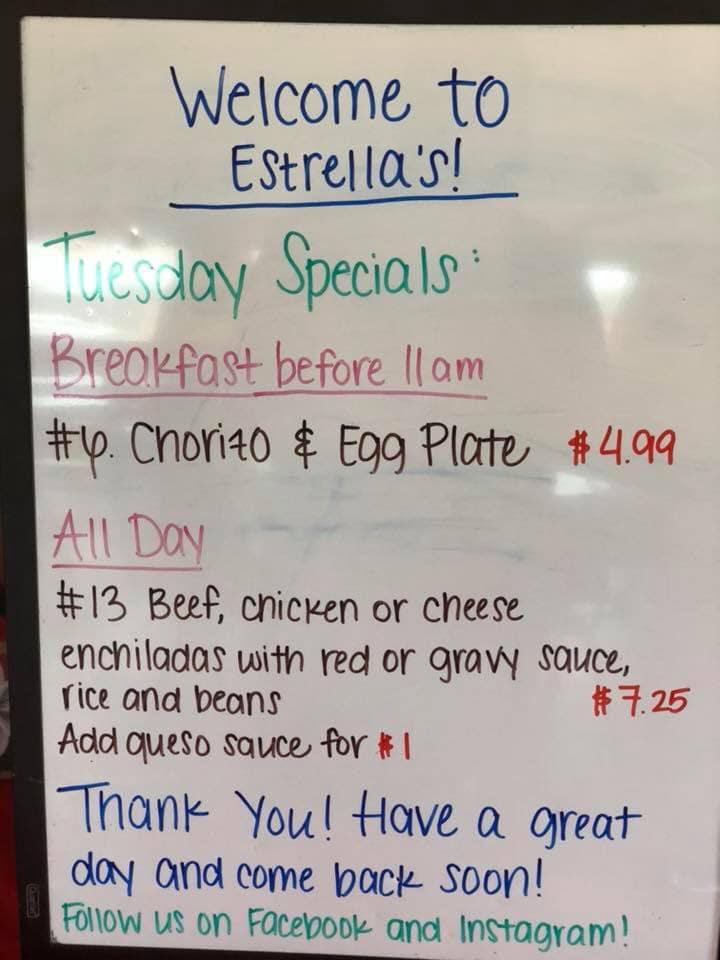 Welcome to
Estrella's!
Tuesday Specials:
Breakfast before 11am
#6. Chorizo & Egg Plate $4.99
All Day
#13 Beef, chicken or cheese
enchiladas with red or gravy sauce,
rice and beans $7.25
Add queso sauce for $1
Thank You! Have a great
day and come back soon!
Follow us on Facebook and Instagram!